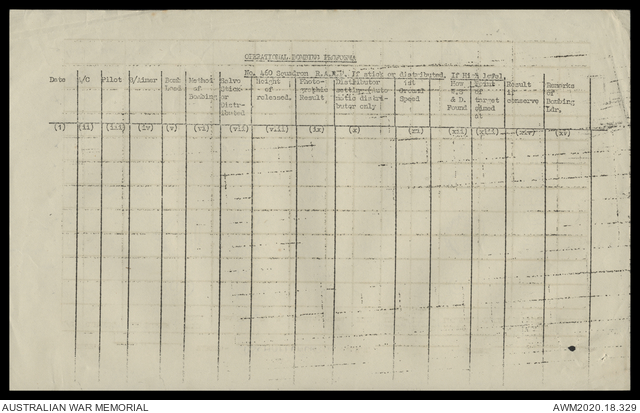 OPERATIONAL BOMBING PROFORMA
No. 460 Squadron R.A.A.F. If stick or distributed. If High level
Date A/C Pilot B/Aimer Bomb Method Salvo Height Photo- Distributor Ground How Point Result Remarks
Load of Stick of graphic setting (auto Speed W.S. of if of
Bombing or released. Result matic distri- & D. target conserve Bombing
Distri- butor only) Found aimed Ldr.
buted at
(i) (ii) (iii) (iv) (v) (vi) (vii) (viii) (ix) (x) (xi) (xii) (xiii) (xiv) (xv)
AUSTRALIAN WAR MEMORIAL
AWM2020.18.329